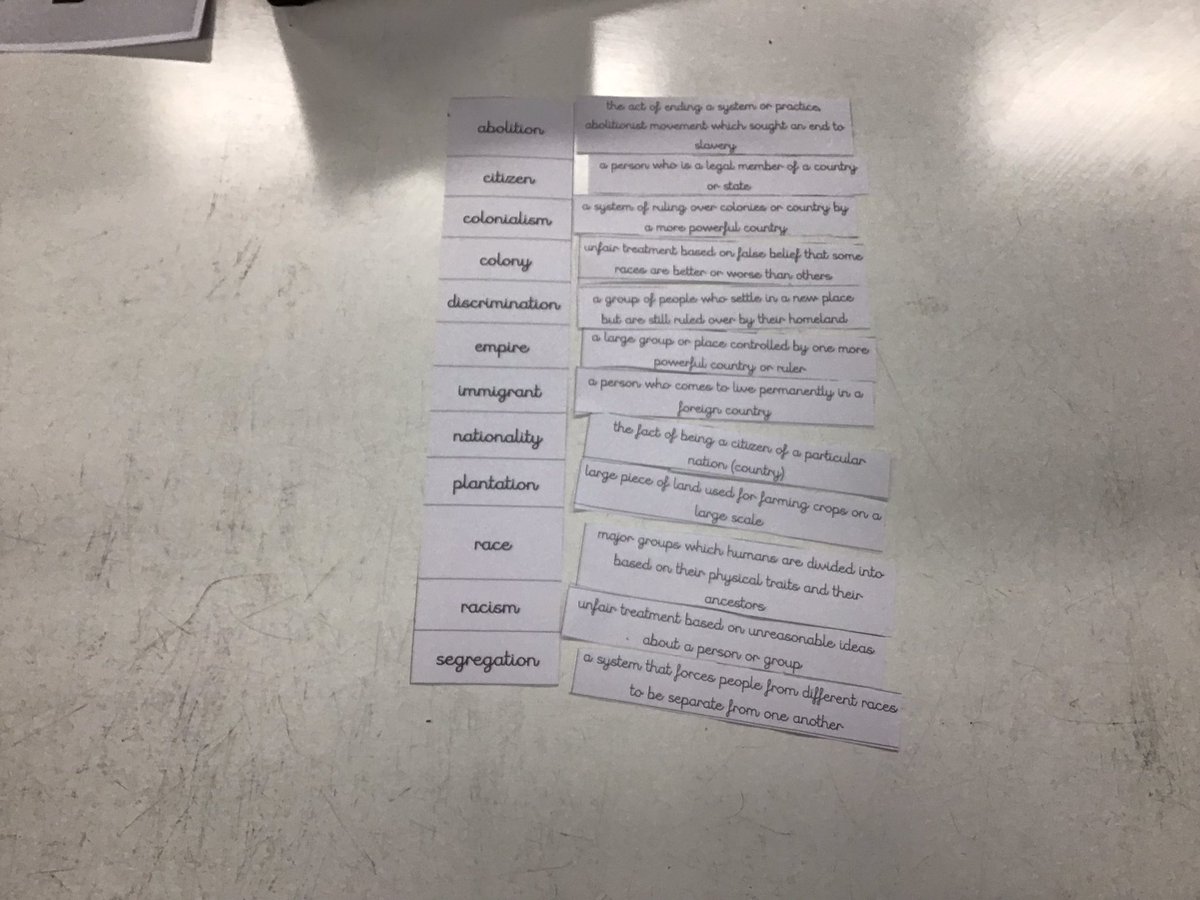 abolition
the act of ending a system or practice,
abolitionist movement which sought an end to
slavery
citizen
a person who is a legal member of a country
or state
colonialism
a system of ruling over colonies or country by
a more powerful country
colony
unfair treatment based on false belief that some
races are better or worse than others
discrimination
a group of people who settle in a new place
but are still ruled over by their homeland
empire
a large group or place controlled by one more
powerful country or ruler
immigrant
a person who comes to live permanently in a
foreign country
nationality
the fact of being a citizen of a particular
nation (country)
plantation
large piece of land used for farming crops on a
large scale
race
major groups which humans are divided into
based on their physical traits and their
ancestors
racism
unfair treatment based on unreasonable ideas
about a person or group
segregation
a system that forces people from different races
to be separate from one another